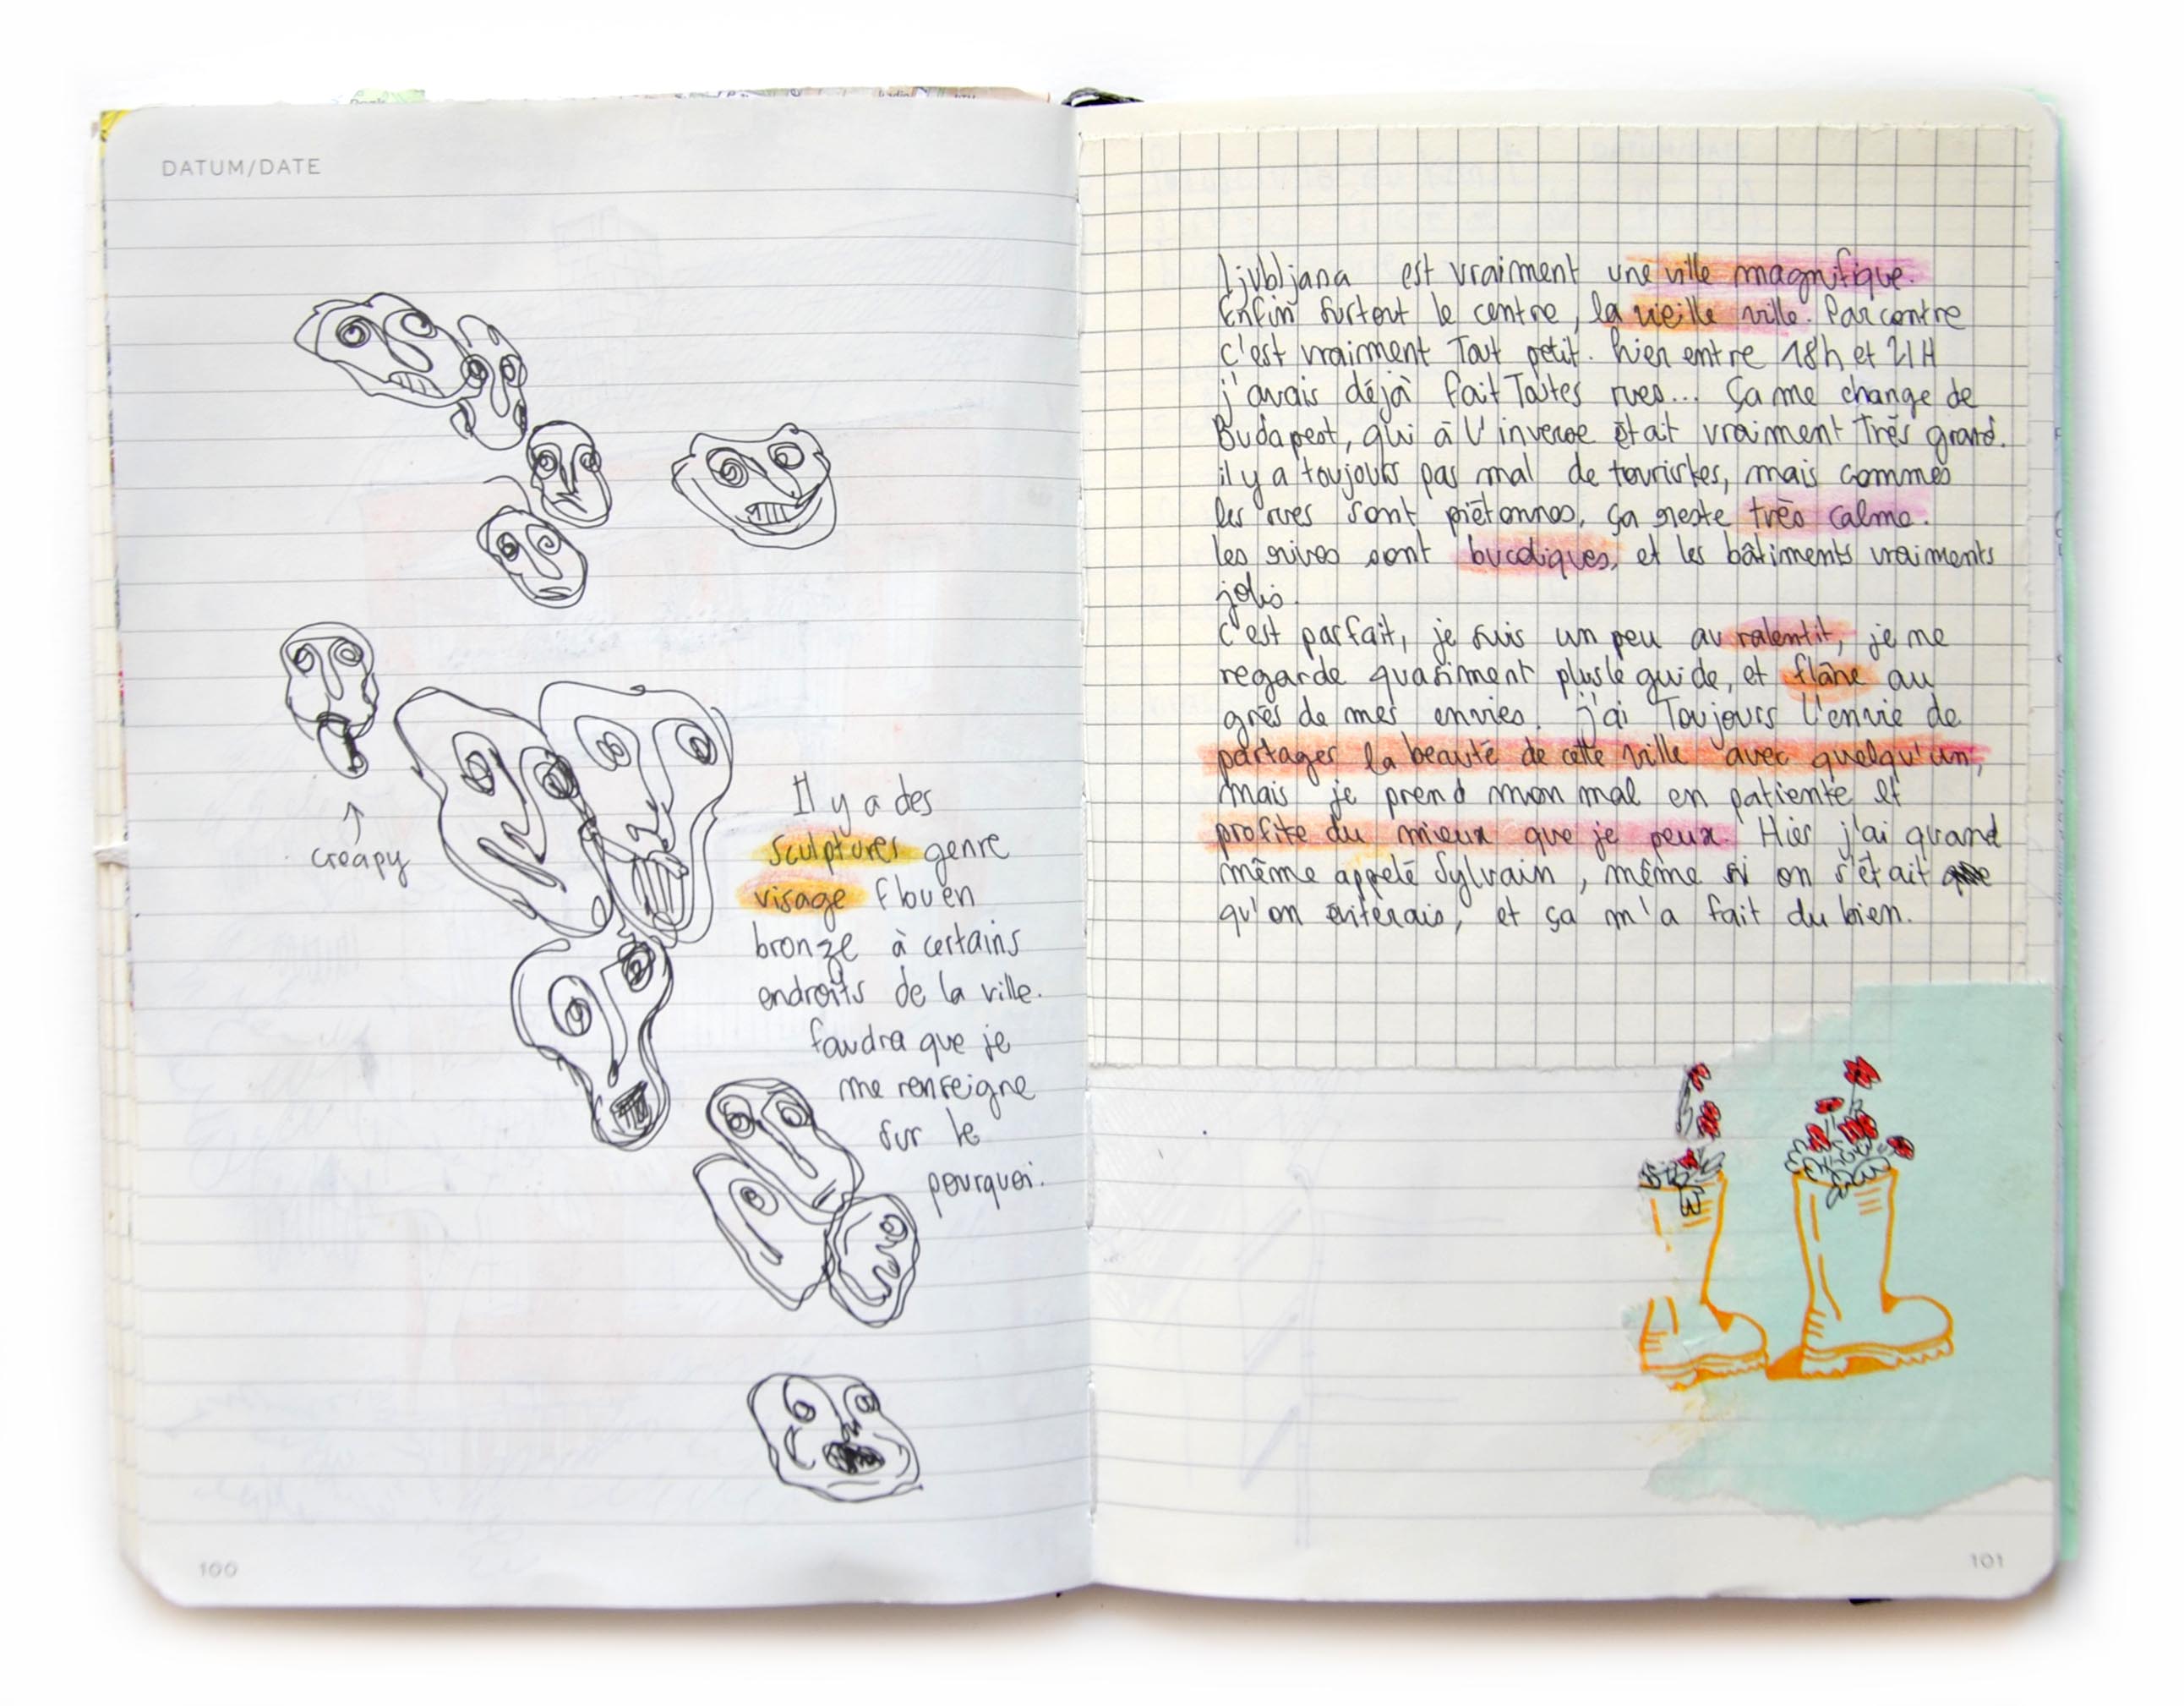 DATUM/DATE
creapy
Il y a des
sculptures genre
visage flou en
bronze à certains
endroits de la ville.
faudra que je
me renseigne
sur le
pourquoi.
100
Ljubljana est vraiment une ville magnifique.
Enfin surtout le centre, la vieille ville. Par contre
c'est vraiment Tout petit. hier entre 18h et 21H
j'avais déjà fait Toutes rues... Ça me change de
Budapest, qui à l'inverse était vraiment Très grand.
il y a toujours pas mal de touristes, mais commes
les rues sont piétonnes, ça reste très calme.
les rives sont bucoliques, et les bâtiments vraiments
jolis.
C'est parfait, je suis un peu au ralentit, je ne
regarde quasiment plus le guide, et flâne au
grès de mes envies. j'ai Toujours l'envie de
partager la beauté de cette ville avec quelqu'un,
mais je prend mon mal en patiente et
profite du mieux que je peux. Hier j'ai quand
même appelé Sylvain, même si on s'était
qu'on éviterais, et ça m'a fait du bien.
101